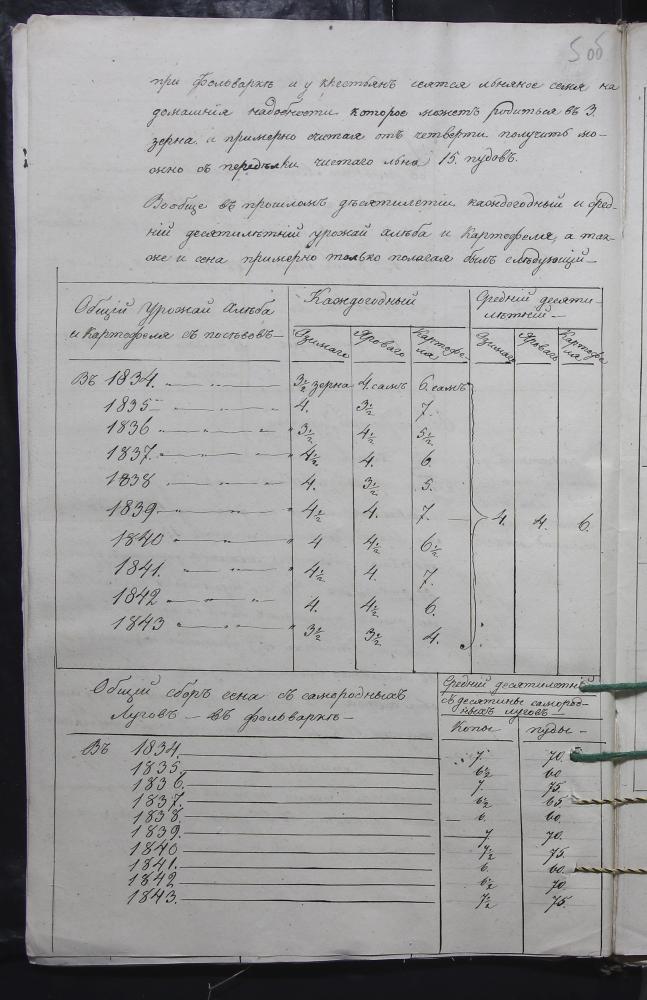 5 об
при Фольваркѣ и у крестьянъ сеятся льняное семя на
домашнія надобности которое можетъ родиться въ 3.
зерна. и примерно счетая отъ четверти получить мо-
жно съ передѣлки чистаго льна 15. пудовъ.
Вообще въ прошломъ десятилетіи каждогодный и сред-
ній десятилѣтній урожай хлѣба и картофеля, а так-
же и сена примерно только полагая былъ слѣдующій —
Общій Урожай хлѣба Каждогодный Средній десяти-
и картофеля съ посѣвовъ — лѣтній —
Озимаго Яроваго Картофе-ля Озимаго Яроваго Картофе-ля
Въ 1834. 3½ зерна 4. самъ 6. самъ
1835 4. 3½ 7.
1836 3½ 4½ 5½
1837. 4½ 4. 6.
1838 4. 3½ 5.
1839 4½ 4. 7. 4. 4. 6.
1840 4 4½ 6½
1841. 4½ 4. 7.
1842 4. 4½ 6.
1843 3½ 3½ 4.
Общій сборъ сена съ самородныхъ Средній десятилѣтній
Луговъ — въ фольваркѣ — съ десятины самород-
ныхъ луговъ
Копы пуды —
Въ 1834. 7. 70.
1835. 6½ 60
1836. 7. 75.
1837. 6½ 65
1838. 6. 60.
1839. 7 70.
1840 7½ 75.
1841. 6. 60.
1842 6½ 70.
1843. 7½ 75.